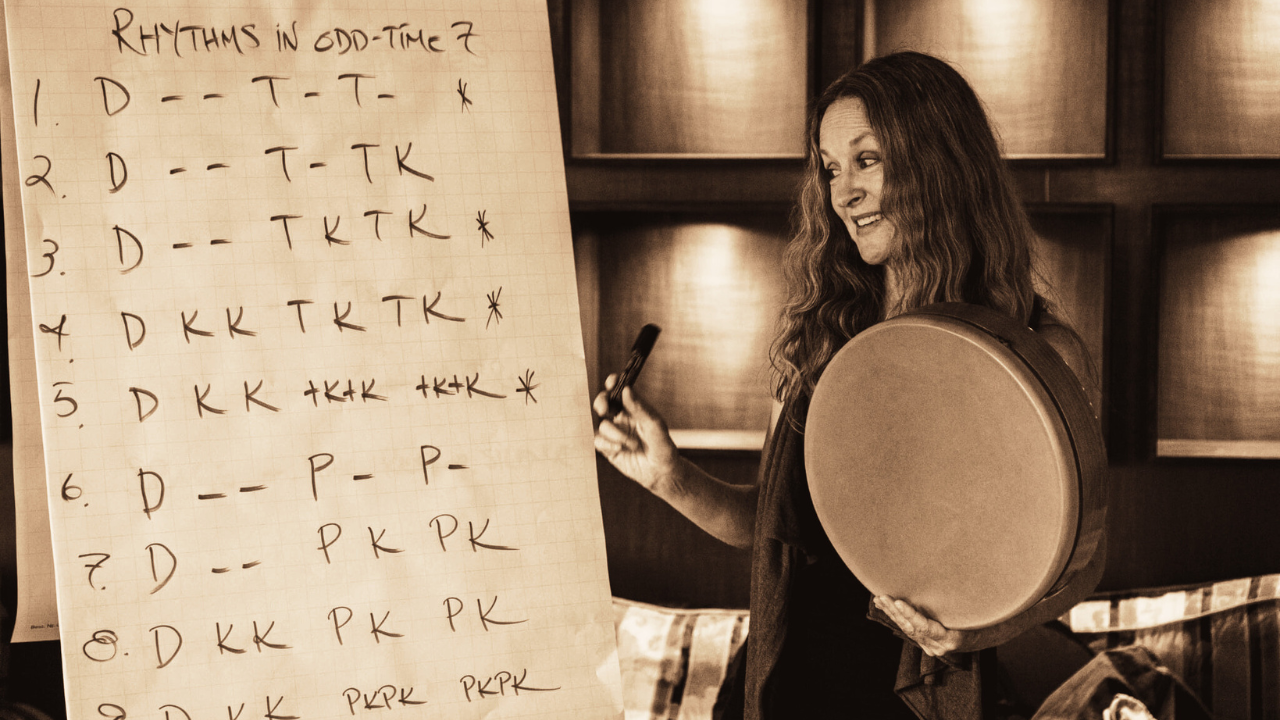 RHYTHMS IN ODD-TIME 7
1. D - - T - T - *
2. D - - T - T K
3. D - - T K T K *
4. D K K T K T K *
5. D K K +K+K +K+K *
6. D - - P - P -
7. D - - P K P K
8. D K K P K P K
9. D K K PKPK PKPK